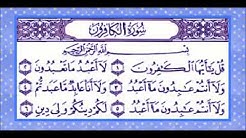 سورة الكافرون
بسم الله الرحمن الرحيم
قل يأيها الكفرون ١ لا أعبد ما تعبدون ٢
ولا أنتم عبدون ما أعبد ٣ ولا أنا عابد ما عبدتم ٤
ولا أنتم عبدون ما أعبد ٥ لكم دينكم ولي دين ٦